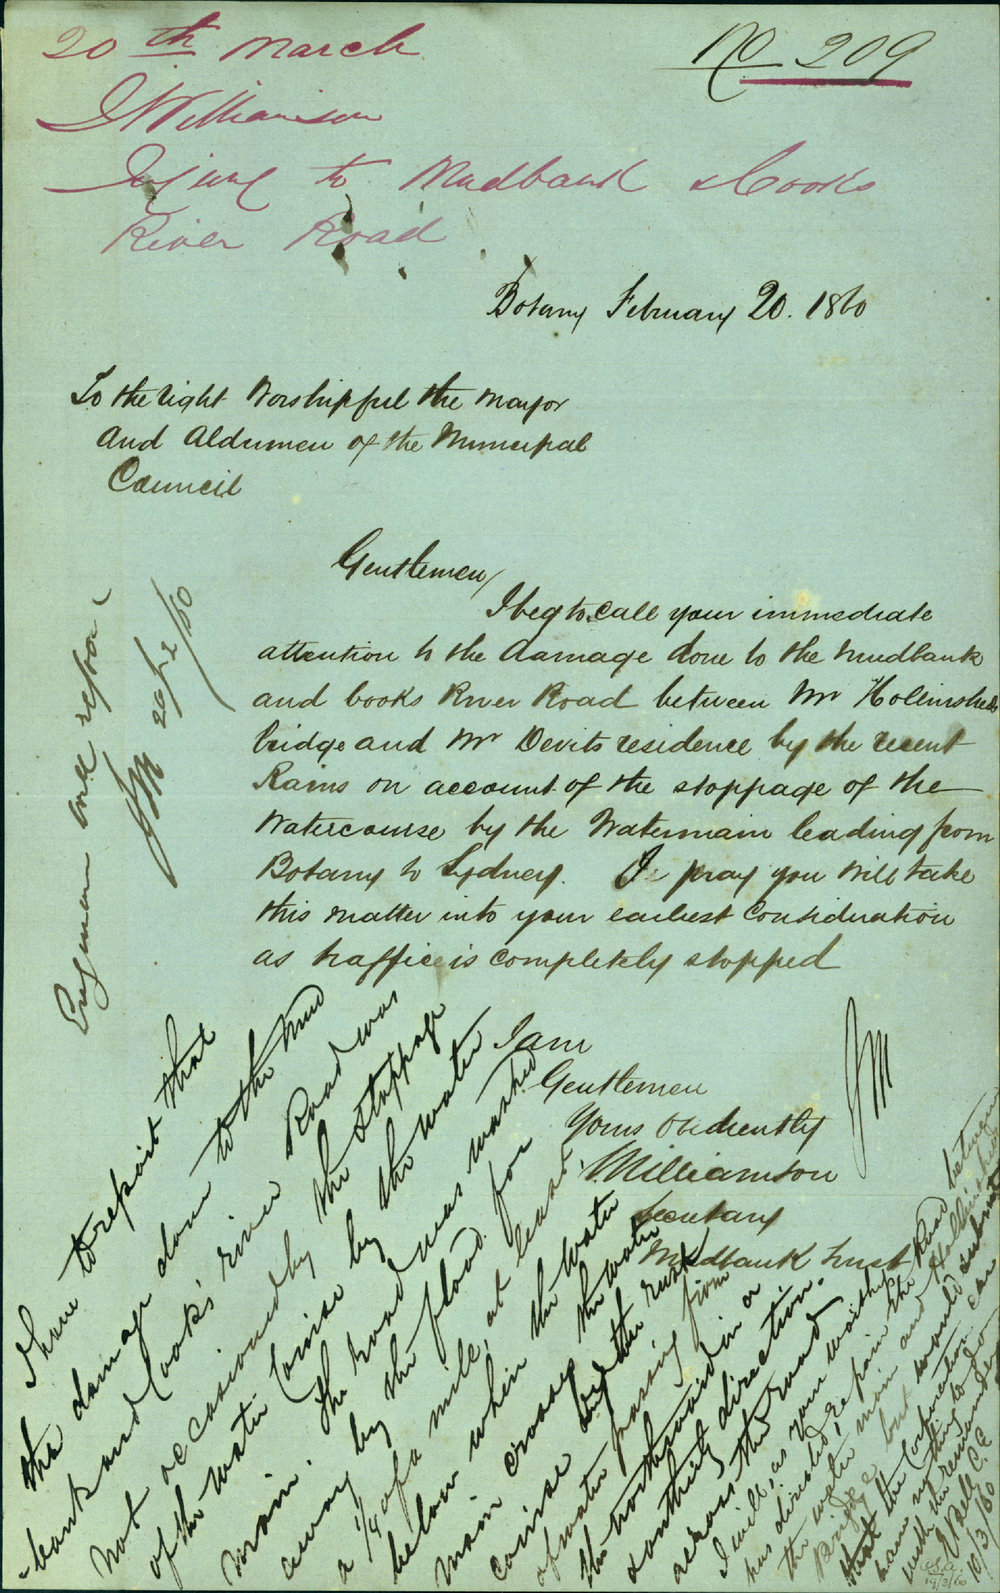 20th March
No 209
J Williamson
Injury to Mudbank & Cooks
River Road
Botany February 20. 1860
To the right Worshipful the Mayor
and Aldermen of the Municipal
Council
Gentlemen/
I beg to call your immediate
attention to the damage done to the Mudbank
and Cooks River Road between Mr Hollinsheds
bridge and Mr Devits residence by the recent
Rains on account of the stoppage of the
Watercourse by the Watermain leading from
Botany to Sydney. I pray you will take
this matter into your earliest Consideration
as traffic is completely stopped
I am
Gentlemen
Yours Obediently
J. Williamson
Secretary
Mudbank Trust
Engineer will report
20/2/60
JM
I have to report that
the damage done to the Mud
-bank and Cook's river Road was
not occasioned by the stoppage
of the water Course by the water
main. The road was washed
away by the flood for
a 1/4 of a mile, at least,
below where the water
main crosses the water
course and the rush
of water passing from
the northward in a
southerly direction.
across the road
I will, as your worship
has directed, repair the Road between
the water main and Hollinshed
Bridge but would submit
that the Corporation can
have nothing to do
with the remainder
Bell C.E
10/3/60